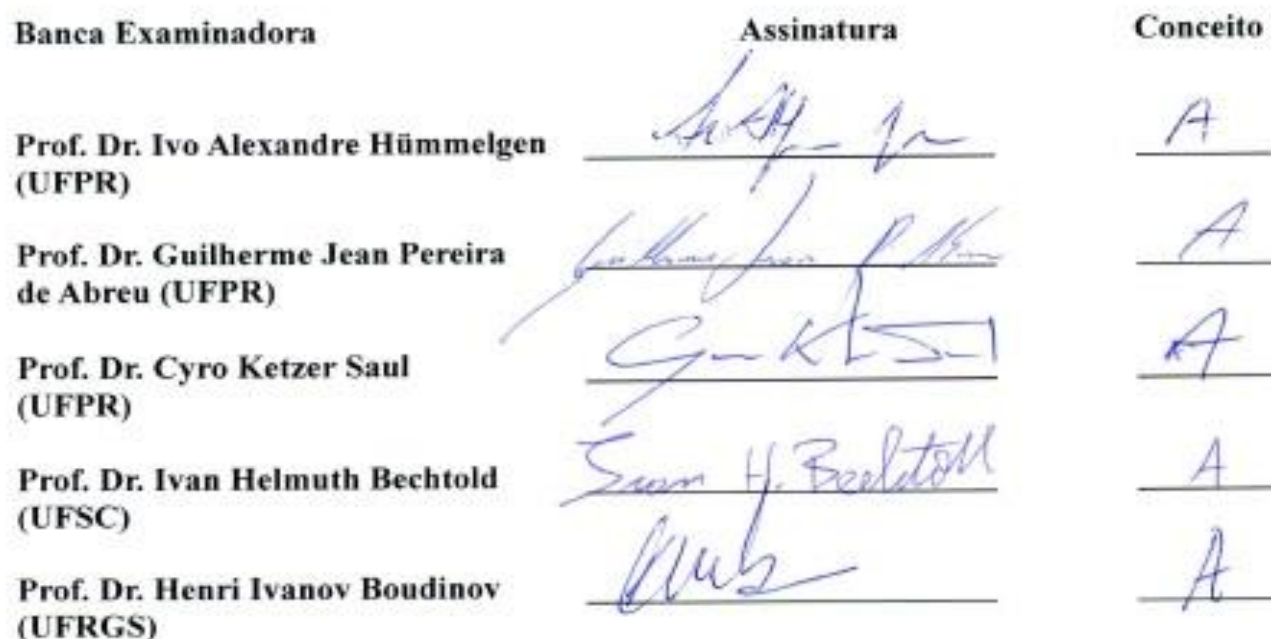 Banca Examinadora Assinatura Conceito
Prof. Dr. Ivo Alexandre Hümmelgen A
(UFPR)
Prof. Dr. Guilherme Jean Pereira Guilherme Jean P. A
de Abreu (UFPR)
Prof. Dr. Cyro Ketzer Saul A
(UFPR)
Prof. Dr. Ivan Helmuth Bechtold Ivan H. Bechtold A
(UFSC)
Prof. Dr. Henri Ivanov Boudinov A
(UFRGS)